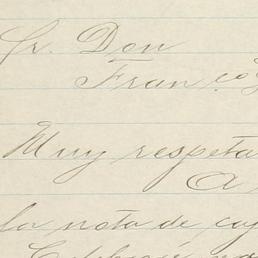 Sr. Don
Fran.co
Muy respeta
A
la nota de